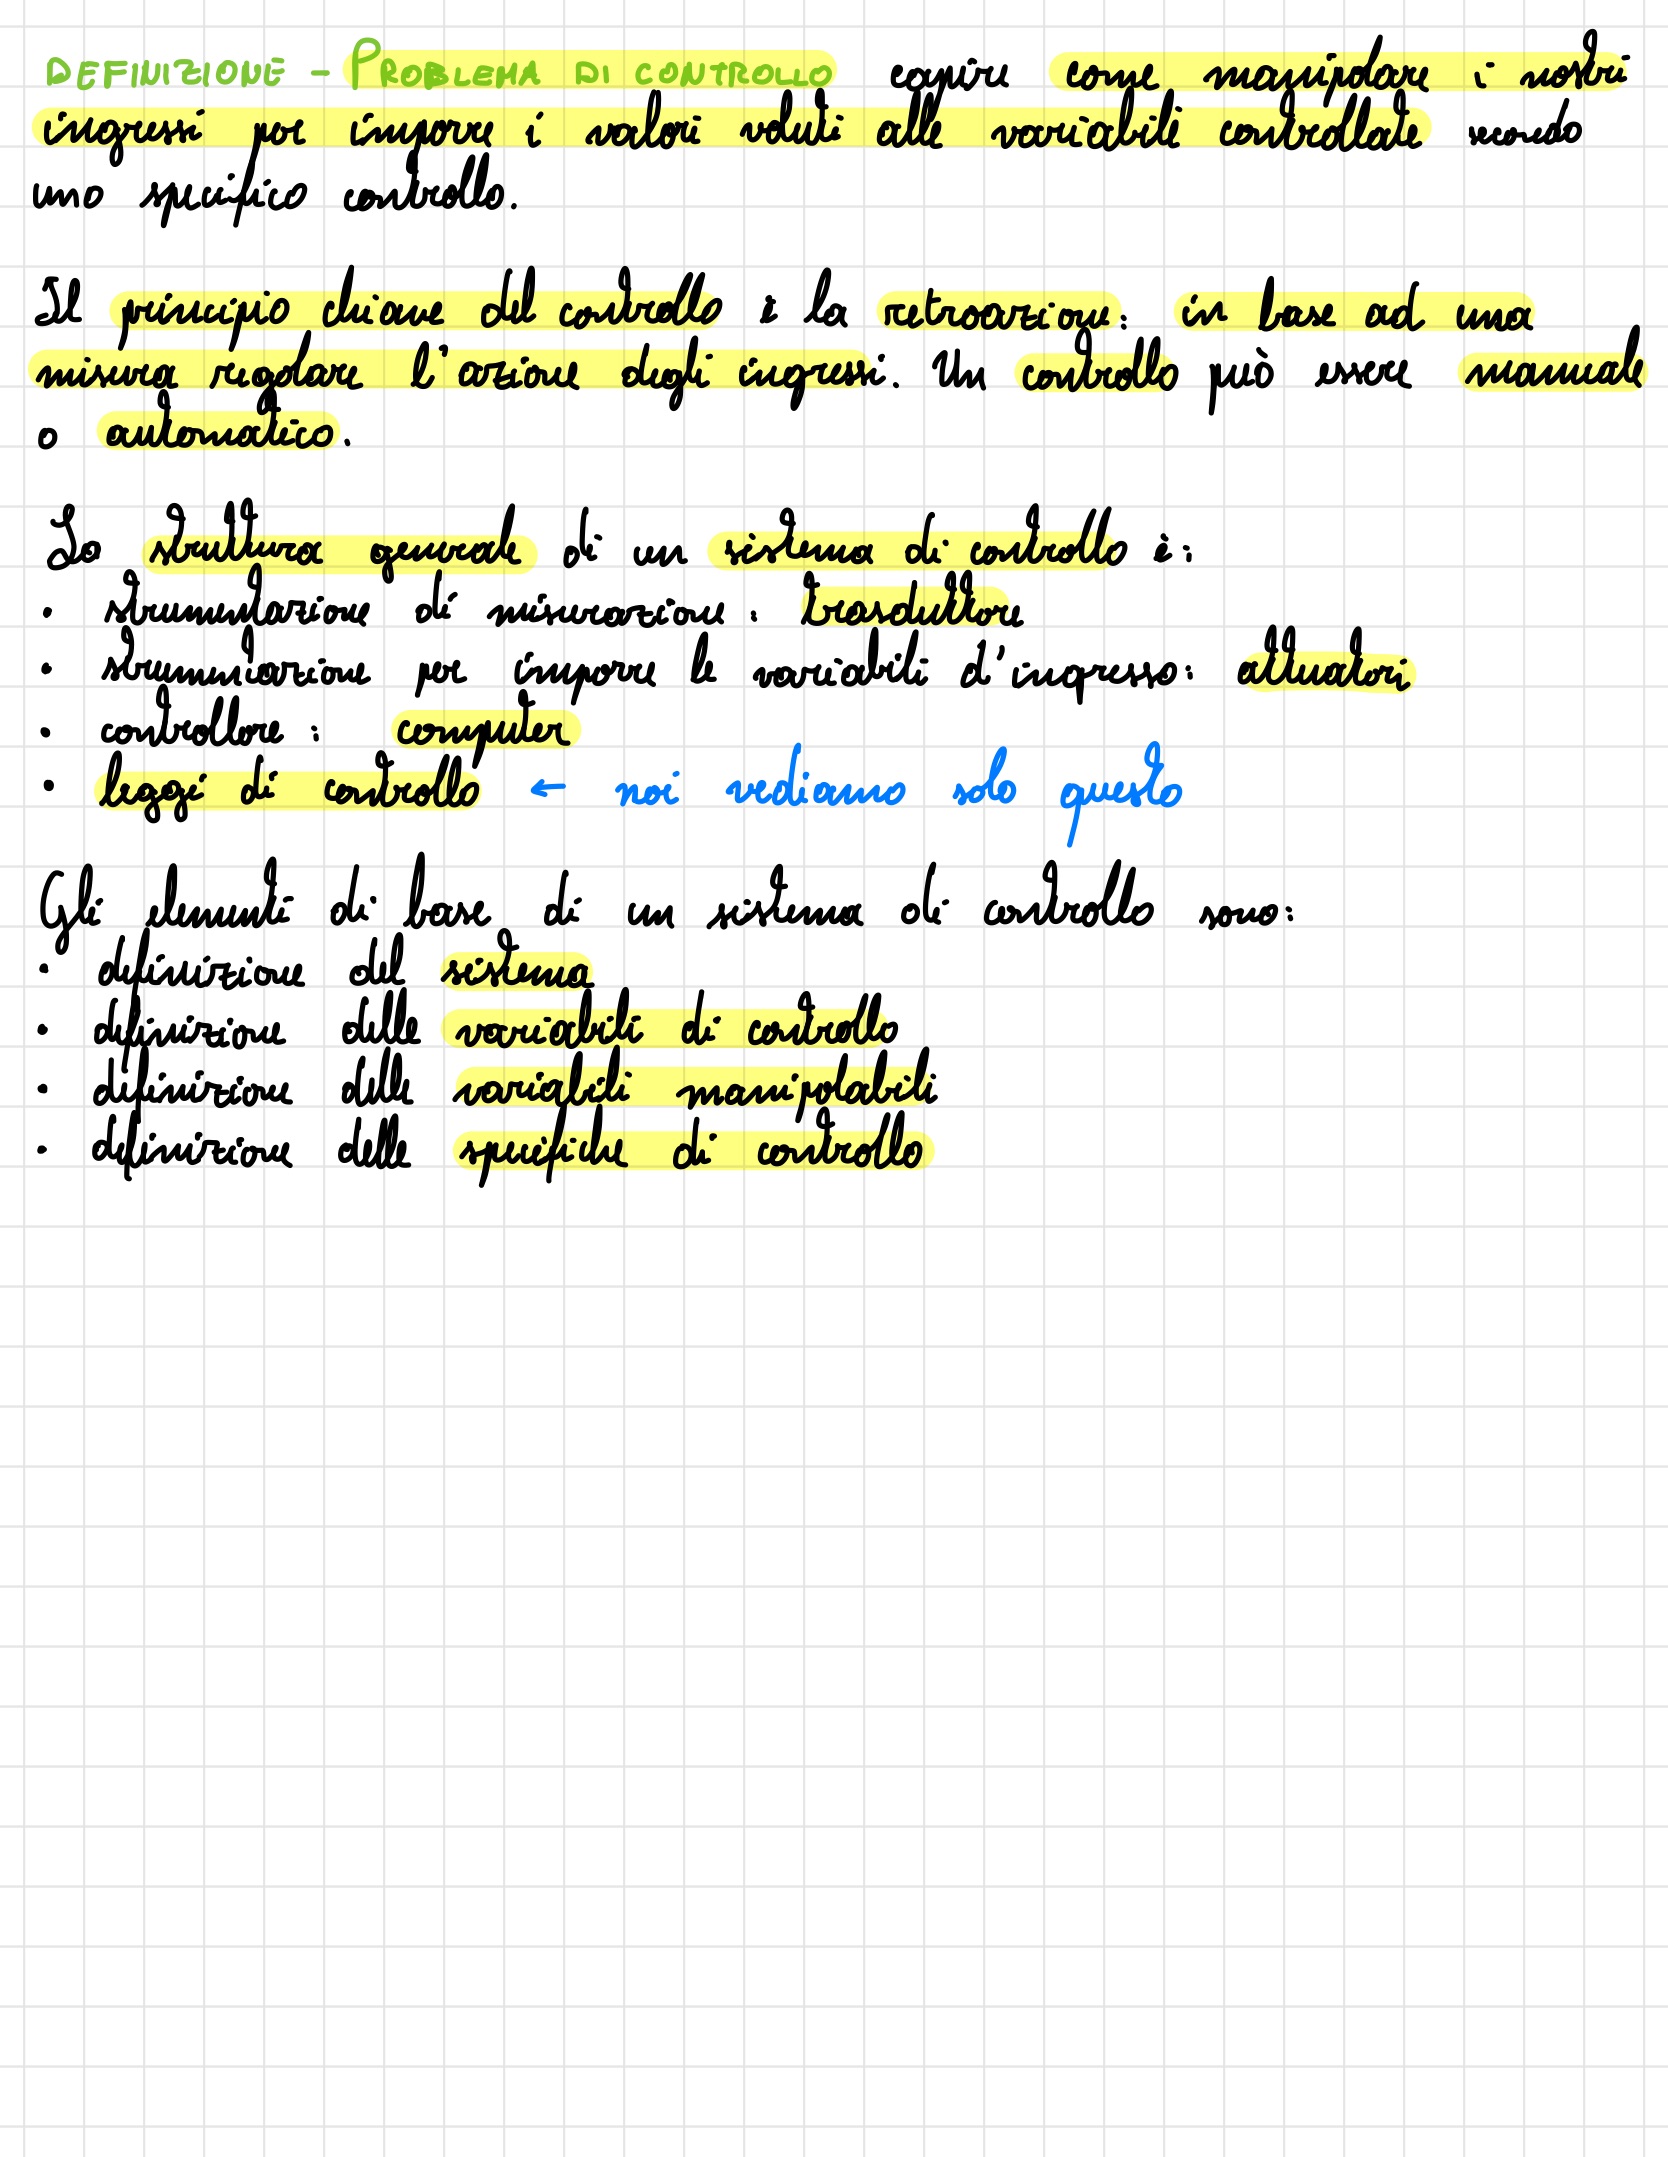 DEFINIZIONE - PROBLEMA DI CONTROLLO capire come manipolare i nostri
ingressi per imporre i valori voluti alle variabili controllate secondo
uno specifico controllo.
Il principio chiave del controllo è la retroazione: in base ad una
misura regolare l'azione degli ingressi. Un controllo può essere manuale
o automatico.
La struttura generale di un sistema di controllo è:
• strumentazione di misurazione: trasduttore
• strumentazione per imporre le variabili d'ingresso: attuatori
• controllore: computer
• leggi di controllo ← noi vediamo solo questo
Gli elementi di base di un sistema di controllo sono:
• definizione del sistema
• definizione delle variabili di controllo
• definizione delle variabili manipolabili
• definizione delle specifiche di controllo